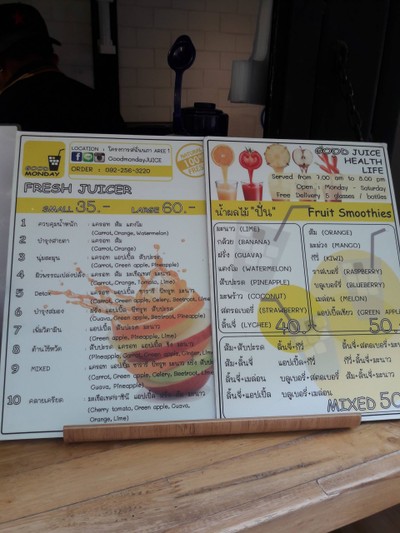 GOOD
MONDAY
LOCATION : โครงการณ์อินทรา AREE 1
GoodmondayJUICE
ORDER : 092-256-3230
100%
FRESH JUICER
SMALL 35.- LARGE 60.-
1 ควบคุมน้ำหนัก : แครอท ส้ม แตงโม
(Carrot, Orange, Watermelon)
2 บำรุงสายตา : แครอท ส้ม
(Carrot, Orange)
3 : แครอท แอปเปิ้ล สับปะรด
(Carrot, Green apple, Pineapple)
4 ผิวพรรณเปล่งปลั่ง : แครอท ส้ม มะเขือเทศ มะนาว
(Carrot, Orange, Tomato, Lime)
5 Detox
(Carrot, Green apple, Celery, Beetroot, Lime
6 บำรุงสมอง : ฝรั่ง แครอท แอปเปิ้ล บีทรูท สับปะรด
(Guava, Carrot, Green apple, Beetroot, Pineapple)
7 เพิ่มวิตามิน : แอปเปิ้ล สับปะรด มะนาว
(Green apple, Pineapple, Lime)
8 ต้านไข้หวัด : สับปะรด แครอท แอปเปิ้ล ขิง มะนาว
(Pineapple, Carrot, Green apple, Ginger, Lime
9 MIXED
(Carrot, Green apple, Celery, Beetroot, Lime
Guava, Pineapple)
10 คลายเครียด : มะเขือเทศราชินี แอปเปิ้ล ฝรั่ง ส้ม มะนาว
(Cherry tomato, Green apple, Guava,
Orange, Lime)
GOOD JUICE
HEALTH
LIFE
Served from 7.00 am to 8.00 pm
Open : Monday - Saturday
Free Delivery 5 glasses / bottles
น้ำผลไม้ "ปั่น" Fruit Smoothies
มะนาว (LIME)
กล้วย (BANANA)
ฝรั่ง (GUAVA)
แตงโม (WATERMELON)
สับปะรด (PINEAPPLE)
มะพร้าว (COCONUT)
สตรอเบอร์รี่ (STRAWBERRY)
ลิ้นจี่ (LYCHEE) 40.-
ส้ม (ORANGE)
มะม่วง (MANGO)
กีวี่ (KIWI)
ราสเบอร์รี่ (RASPBERRY)
บลูเบอร์รี่ (BLUEBERRY)
เมล่อน (MELON)
แอปเปิ้ลเขียว (GREEN APPLE)
50.-
ส้ม-สับปะรด ลิ้นจี่-กีวี่
ส้ม-ลิ้นจี่ แอปเปิ้ล-กีวี่ ลิ้นจี่-มะนาว
ลิ้นจี่-เมล่อน บลูเบอร์รี่-สตรอเบอร์รี่ ส้ม-มะนาว
ลิ้นจี่-แอปเปิ้ล บลูเบอร์รี่-เมล่อน
MIXED 50